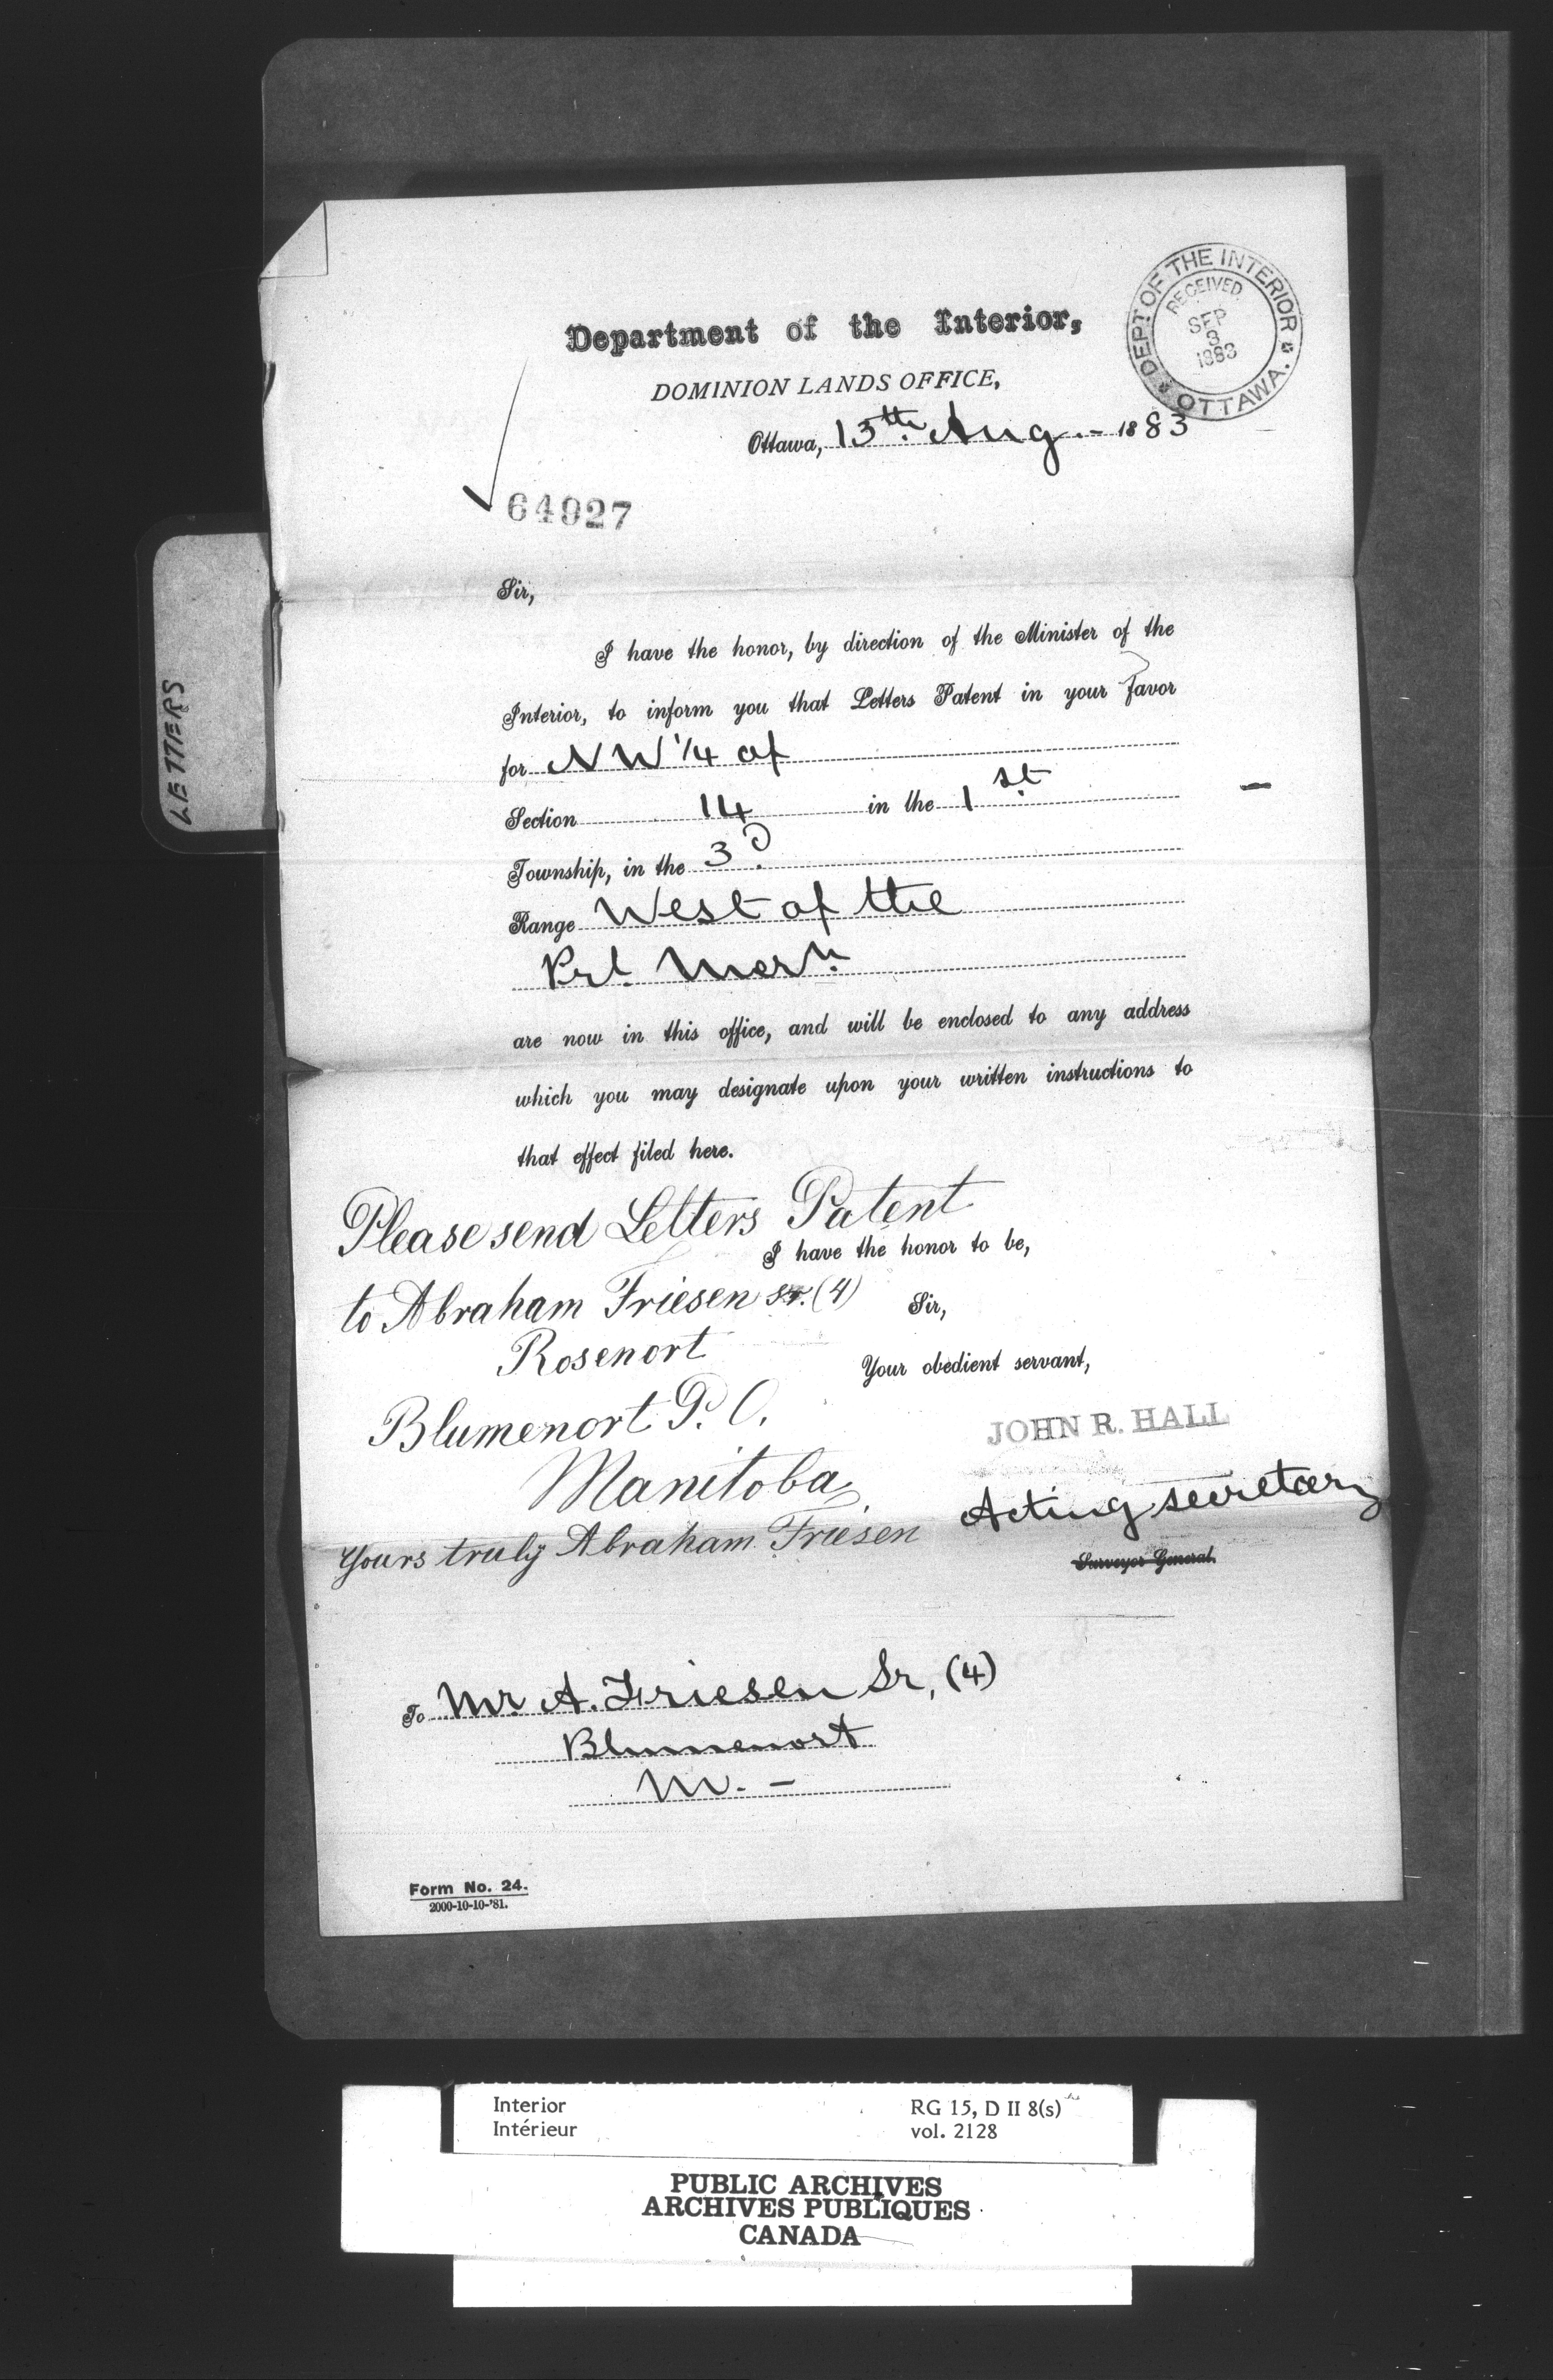 LETTERS
Department of the Interior,
DOMINION LANDS OFFICE,
DEPT OF THE INTERIOR
RECEIVED
SEP
3
1883
OTTAWA.
Ottawa, 13th. Aug. - 1883
64927
Sir,
I have the honor, by direction of the Minister of the
Interior, to inform you that Letters Patent in your favor
for N W 1/4 of
Section 14 in the 1st
Township, in the 3d
Range West of the
Prl. Mern.
are now in this office, and will be enclosed to any address
which you may designate upon your written instructions to
that effect filed here.
Please send Letters Patent
I have the honor to be,
to Abraham Friesen sr. (4)
Sir,
Rosenort
Your obedient servant,
Blumenort P. O.
JOHN R. HALL
Manitoba
Acting secretary
Yours truly Abraham Friesen
Surveyor General.
To Mr. A. Friesen Sr, (4)
Blumenort
M. -
Form No. 24.
2000-10-10-'81.
Interior RG 15, D II 8(s)
Intérieur vol. 2128
PUBLIC ARCHIVES
ARCHIVES PUBLIQUES
CANADA